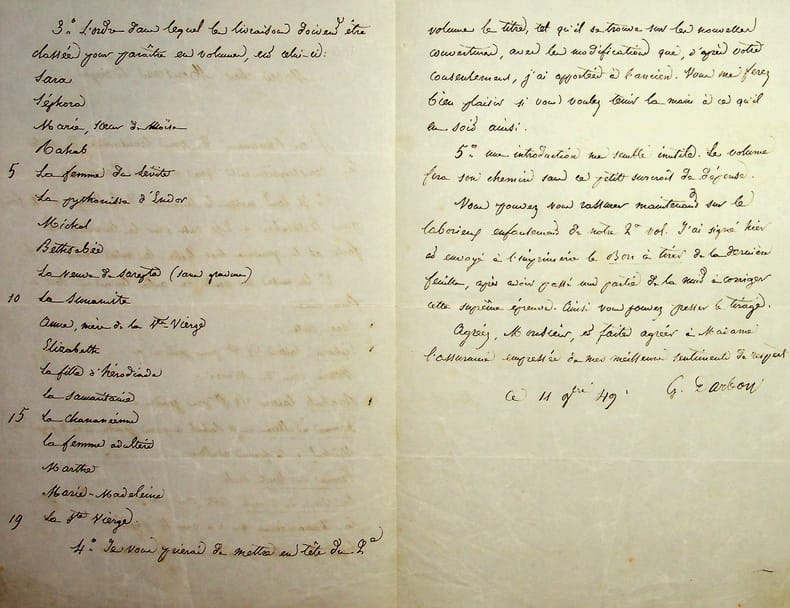 3.° L'ordre dans lequel les livraisons doivent être
classées pour paraître en volumes, est celui-ci:
Sara
Séphora
Marie, sœur de Moïse
Rahab
5 La femme du lévite
La pythonisse d'Endor
Michol
Bethsabée
La veuve de Sarepta (sans gravure)
10 La Sunamite
Anne, mère de la Ste Vierge
Elizabeth
La fille d'hérodiade
La samaritaine
15 La Chananéenne
La femme adultère
Marthe
Marie-Madeleine
19 La Ste Vierge.
4.° Je vous prierai de mettre en tête du 2e
volume le titre, tel qu'il se trouve sur les nouvelles
couvertures, avec les modifications que, d'après votre
consentement, j'ai apportées à l'ancien. Vous me ferez
bien plaisir si vous voulez tenir la main à ce qu'il
en soit ainsi.
5.° une introduction me semble inutile. Le volume
fera son chemin sans ce petit surcroît de dépense.
Vous pouvez vous rassurer maintenant sur le
laborieux enfantement de notre 2e vol. J'ai signé hier
et envoyé à l'imprimerie le Bon à tirer de la dernière
feuille, après avoir passé une partie de la nuit à corriger
cette suprême épreuve. Ainsi vous pouvez presser le tirage.
Agréez, Monsieur, et faites agréer à Madame
l'assurance empressée de mes meilleurs sentiments de respect
Ce 11 9bre 49. G. Darboy